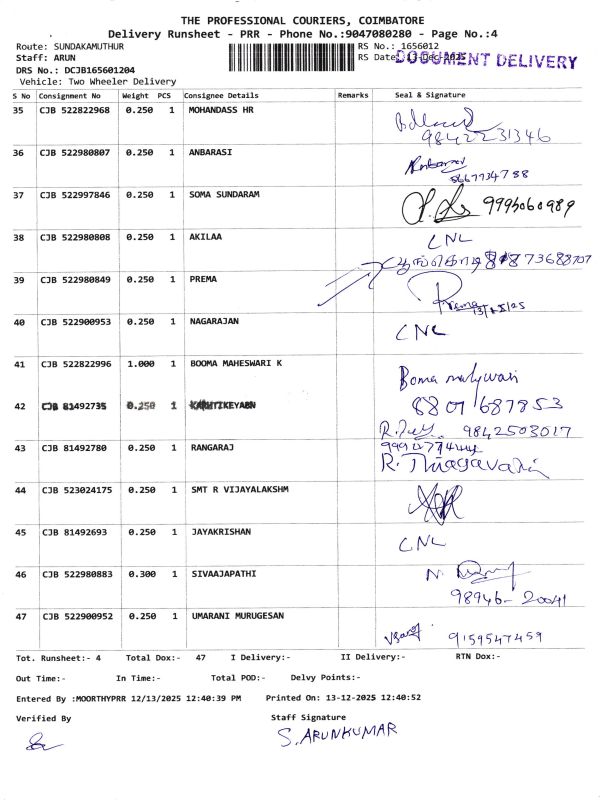 THE PROFESSIONAL COURIERS, COIMBATORE
Delivery Runsheet - PRR - Phone No.:9047080280 - Page No.:4
Route: SUNDAKAMUTHUR
RS No.: 1656012
Staff: ARUN
RS Date: 13-Dec-2025
DOCUMENT DELIVERY
DRS No.: DCJB165601204
Vehicle: Two Wheeler Delivery
S No Consignment No Weight PCS Consignee Details Remarks Seal & Signature
35 CJB 522822968 0.250 1 MOHANDASS HR
9842231346
36 CJB 522980807 0.250 1 ANBARASI
8667734788
37 CJB 522997846 0.250 1 SOMA SUNDARAM
9995060989
38 CJB 522980808 0.250 1 AKILAA CNL
39 CJB 522980849 0.250 1 PREMA
Prema
40 CJB 522900953 0.250 1 NAGARAJAN CNL
41 CJB 522822996 1.000 1 BOOMA MAHESWARI K
8807687853
42 CJB 81492735 0.250 1 KARHTIKEYABN
9842503017
43 CJB 81492780 0.250 1 RANGARAJ
44 CJB 523024175 0.250 1 SMT R VIJAYALAKSHM
45 CJB 81492693 0.250 1 JAYAKRISHAN CNL
46 CJB 522980883 0.300 1 SIVAAJAPATHI
98946-20041
47 CJB 522900952 0.250 1 UMARANI MURUGESAN
9159547459
Tot. Runsheet:- 4 Total Dox:- 47 I Delivery:- II Delivery:- RTN Dox:-
Out Time:- In Time:- Total POD:- Delvy Points:-
Entered By :MOORTHYPRR 12/13/2025 12:40:39 PM Printed On: 13-12-2025 12:40:52
Verified By Staff Signature
S. ARUNKUMAR